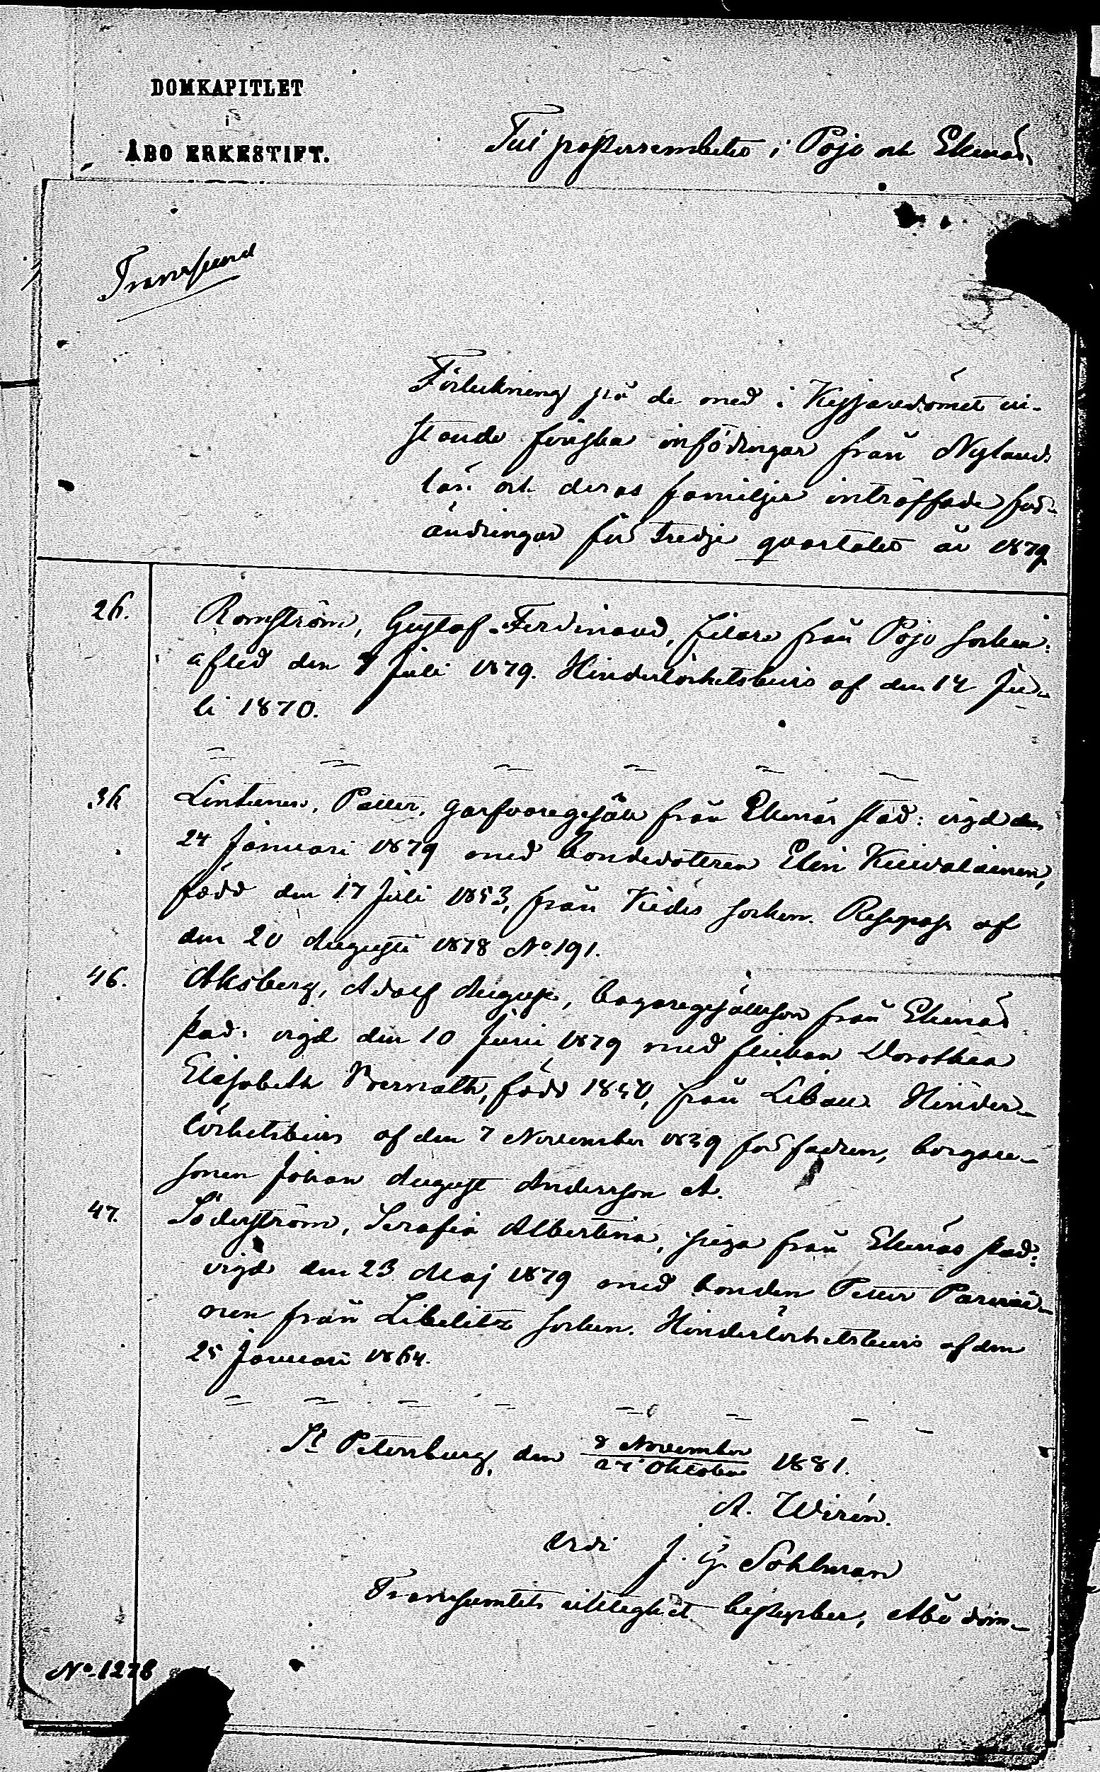 DOMKAPITLET
i
ÅBO ERKESTIFT.
Till pastorsembetet i Pojo och Ekenäs.
Transsumt
Förteckning på de med i Kejsaredömet vi-
stande finska infödingar från Nylands
län och deras familjer inträffade för-
ändringar för tredje qvartalet år 1879
26.
Romström, Gustaf Ferdinand, filare från Pojo socken:
afled den 7 Juli 1879. Hinderlöshetsbevis af den 14 Ju-
li 1870.
36
Lintunen, Petter, garfvaregesäll från Ekenäs stad: vigd den
24 Januari 1879 med bondedottren Elin Kuivalainen,
född den 17 Juli 1853, från Kides socken. Respass af
den 20 Augusti 1878 No 191.
46.
Alksberg, Adolf August, bagaregesällson från Ekenäs
stad: vigd den 10 Juni 1879 med flickan Dorothea
Elisabeth, född 1840, från Libau. Hinder-
löshetsbevis af den 7 November 1839 för fadren, borgare-
sonen Johan August Andersson A.
47.
Söderström, Serafia Albertina, piga från Ekenäs stad:
vigd den 23 Maj 1879 med bonden Petter Parviai-
nen från Libelitz socken. Hinderlöshetsbevis af den
25 Januari 1864.
St Petersburg, den 8 November / 27 Oktober 1881.
A. Wirén.
Vidi J. G. Sohlman
Transsumtets riktighet bestyrker, Åbo dom-
No 1278